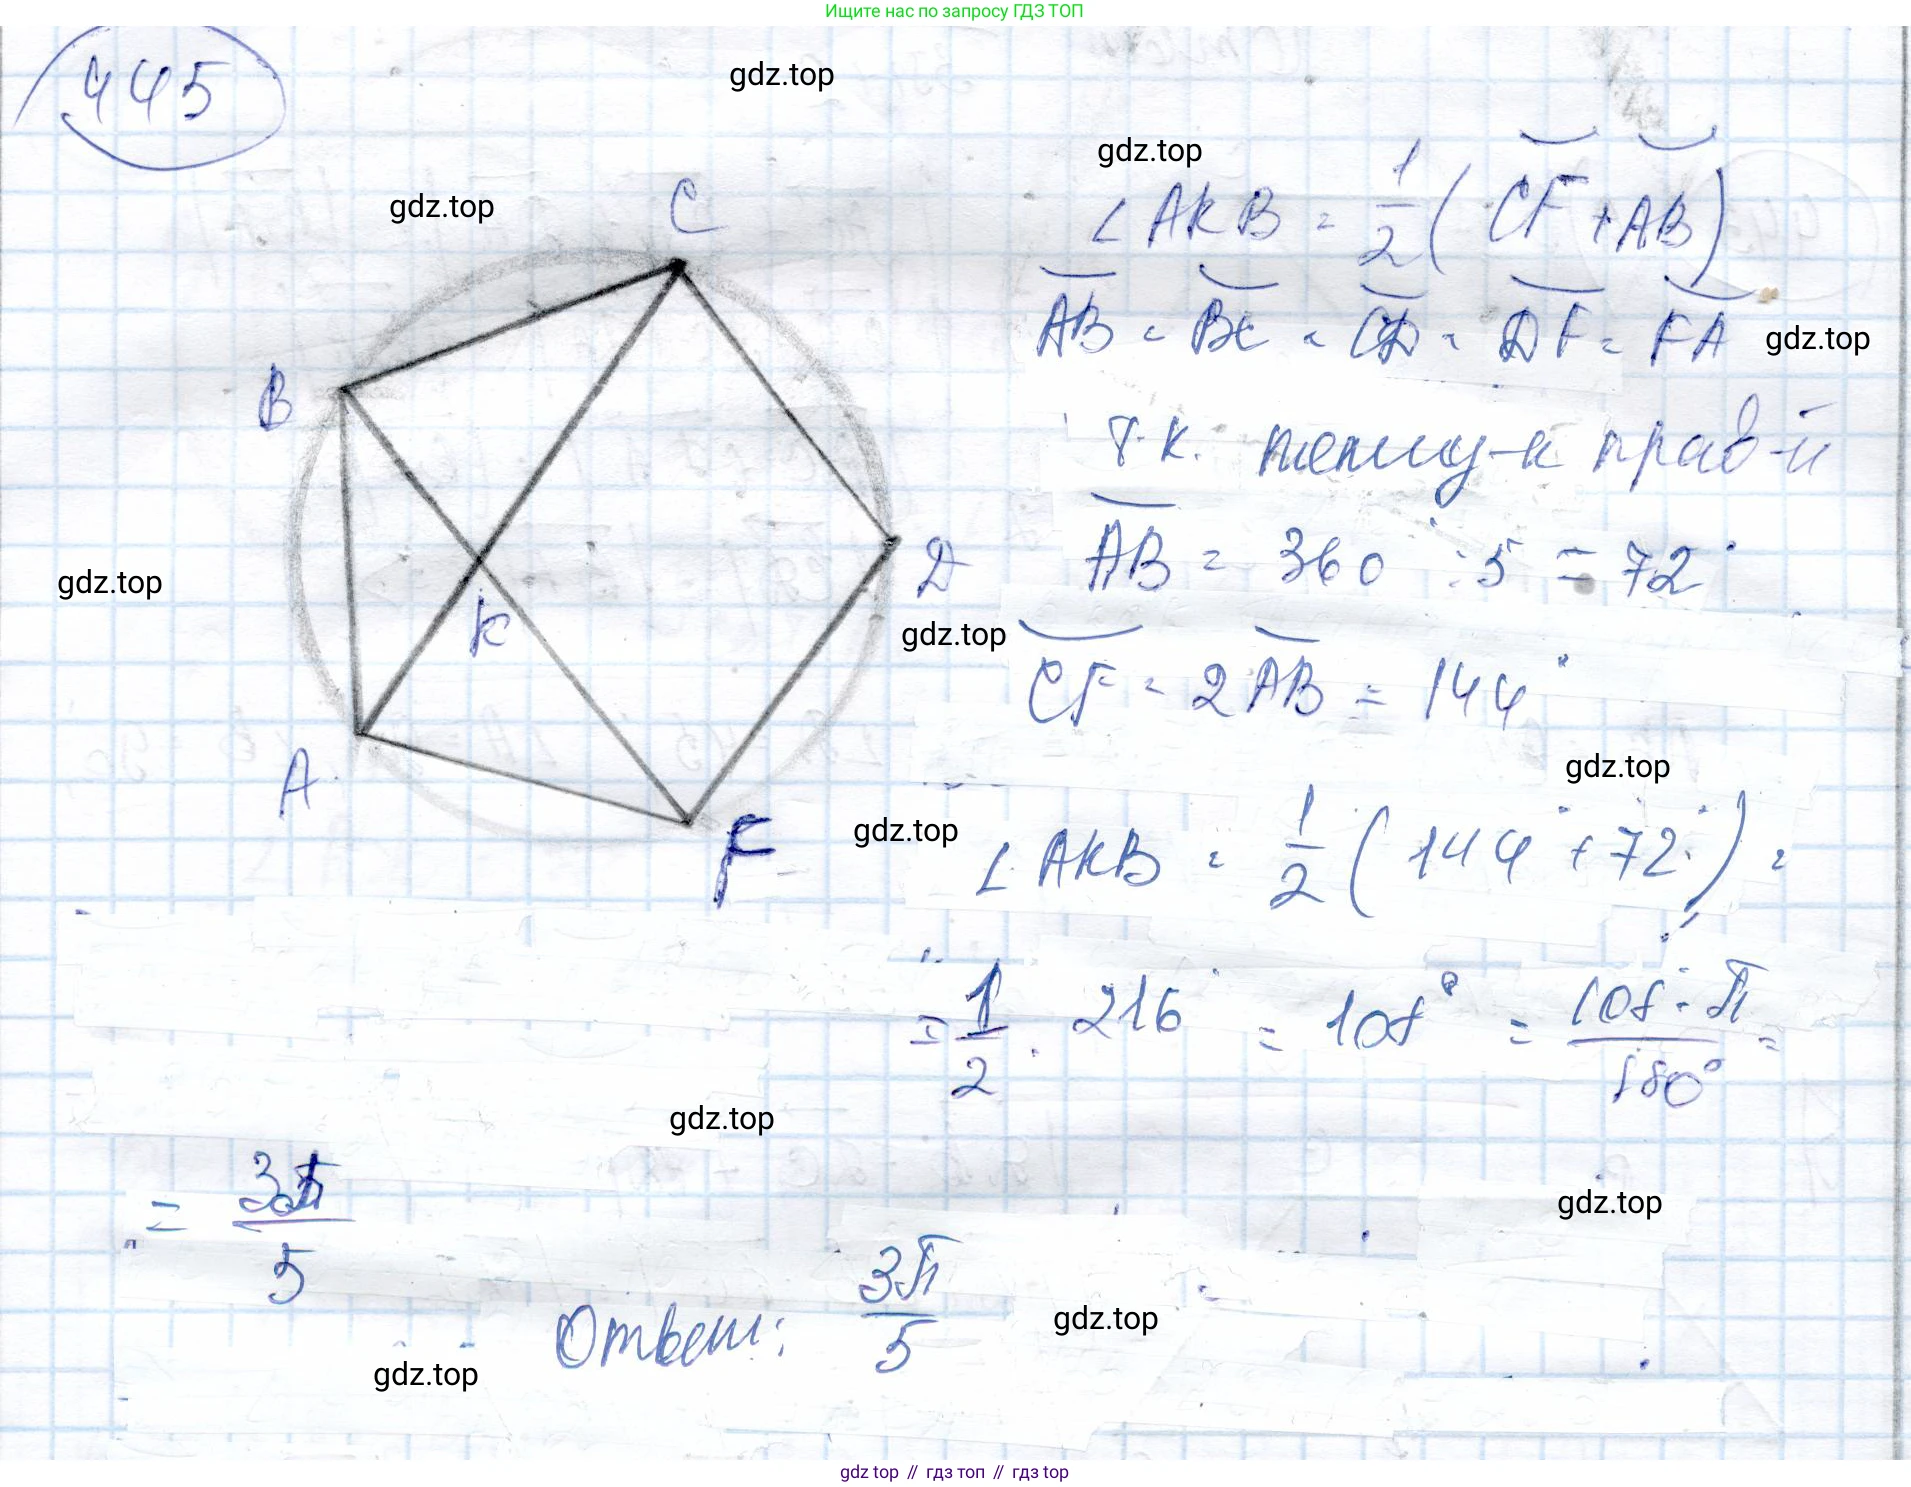 Ищите нас по запросу ГДЗ ТОП
445
gdz.top
gdz.top
gdz.top
C
∠AKB = 1/2 (CF + AB)
AB = BC = CD = DF = FA
gdz.top
B
т.к. пятиуг-к прав-й
AB = 360° : 5 = 72°
gdz.top
D
K
gdz.top
CF = 2AB = 144°
A
gdz.top
F
gdz.top
∠AKB = 1/2 (144° + 72°) =
= 1/2 · 216° = 108° = 108° · π / 180° =
gdz.top
= 3π/5
gdz.top
Ответ: 3π/5
gdz.top
gdz.top
gdz top // гдз топ // гдз top